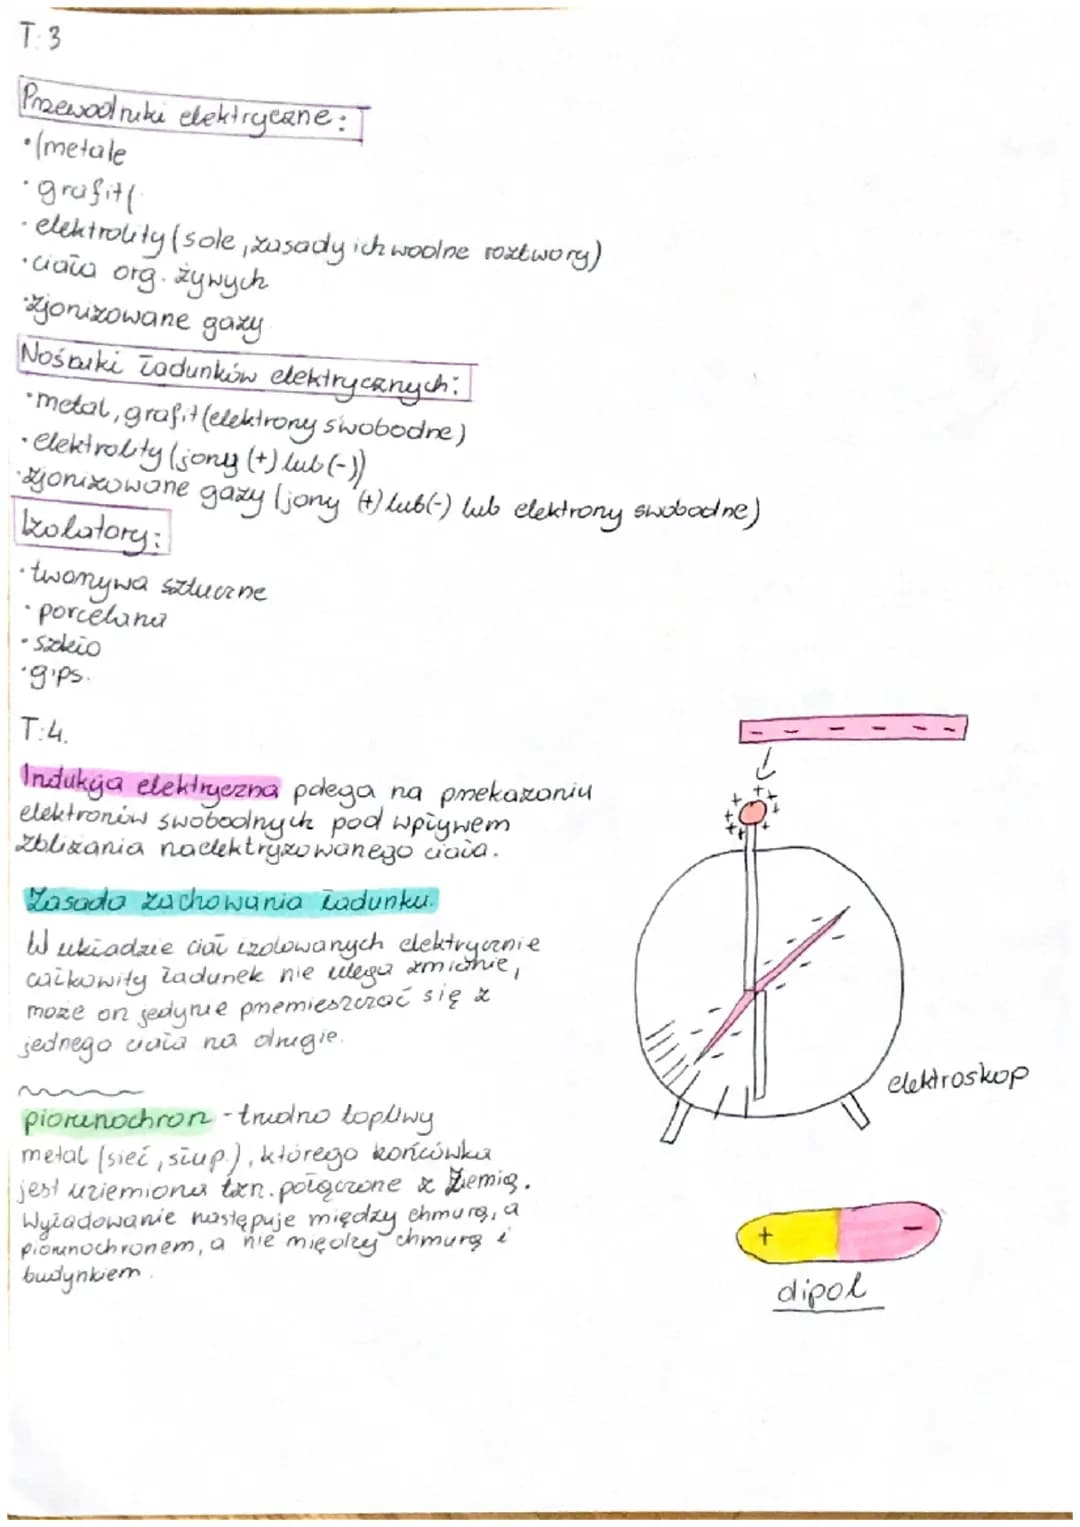 T: 3
Przewodniki elektryczne:
• (metale
• grafit(
• elektrolity (sole, zasady ich wodne roztwory)
• ciała org. żywych
• zjonizowane gazy
Nośniki ładunków elektrycznych:
• metal, grafit (elektrony swobodne)
• elektrolity (jony (+) lub (-))
• zjonizowane gazy (jony (+) lub (-) lub elektrony swobodne)
Izolatory:
• tworzywa sztuczne
• porcelana
• szkło
• gips.
T: 4.
Indukcja elektryczna polega na przekazaniu
elektronów swobodnych pod wpływem
zbliżania naelektryzowanego ciała.
Zasada zachowania ładunku.
W układzie ciał izolowanych elektrycznie
całkowity ładunek nie ulega zmianie,
może on jedynie przemieszczać się z
jednego ciała na drugie.
piorunochron - trudno topliwy
metal (sieć, słup.), którego końcówka
jest uziemiona tzn. połączone z Ziemią.
Wyładowanie następuje między chmurą, a
piorunochronem, a nie między chmurą i
budynkiem.
elektroskop
+ -
dipol